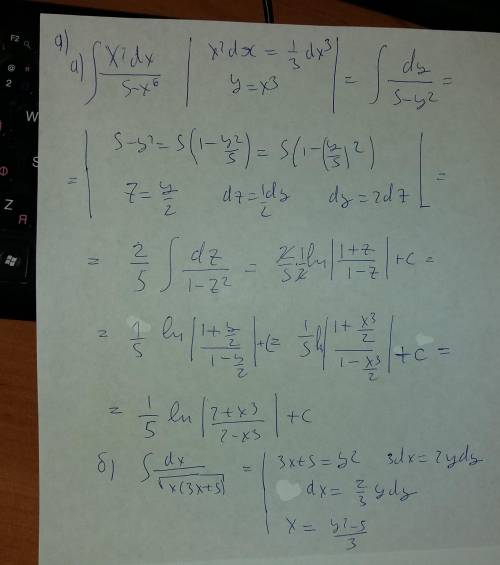 9)
а) ∫ x²dx / 5-x⁶ | x²dx = 1/3 dx³ y = x³ | = ∫ dy / 5-y² =
= | 5-y² = 5(1-y²/5) = 5(1-(y/5)²) z = y/2 dz = 1/2 dy dy = 2dz | =
= 2/5 ∫ dz / 1-z² = 2/5 1/2 ln|1+z / 1-z| + c =
= 1/5 ln|1+y/2 / 1-y/2| + c = 1/5 ln|1+x³/2 / 1-x³/2| + c =
= 1/5 ln|2+x³ / 2-x³| + c
б) ∫ dx / √x(3x+5) = | 3x+5 = y² 3dx = 2ydy
dx = 2/3 ydy
x = y²-5 / 3